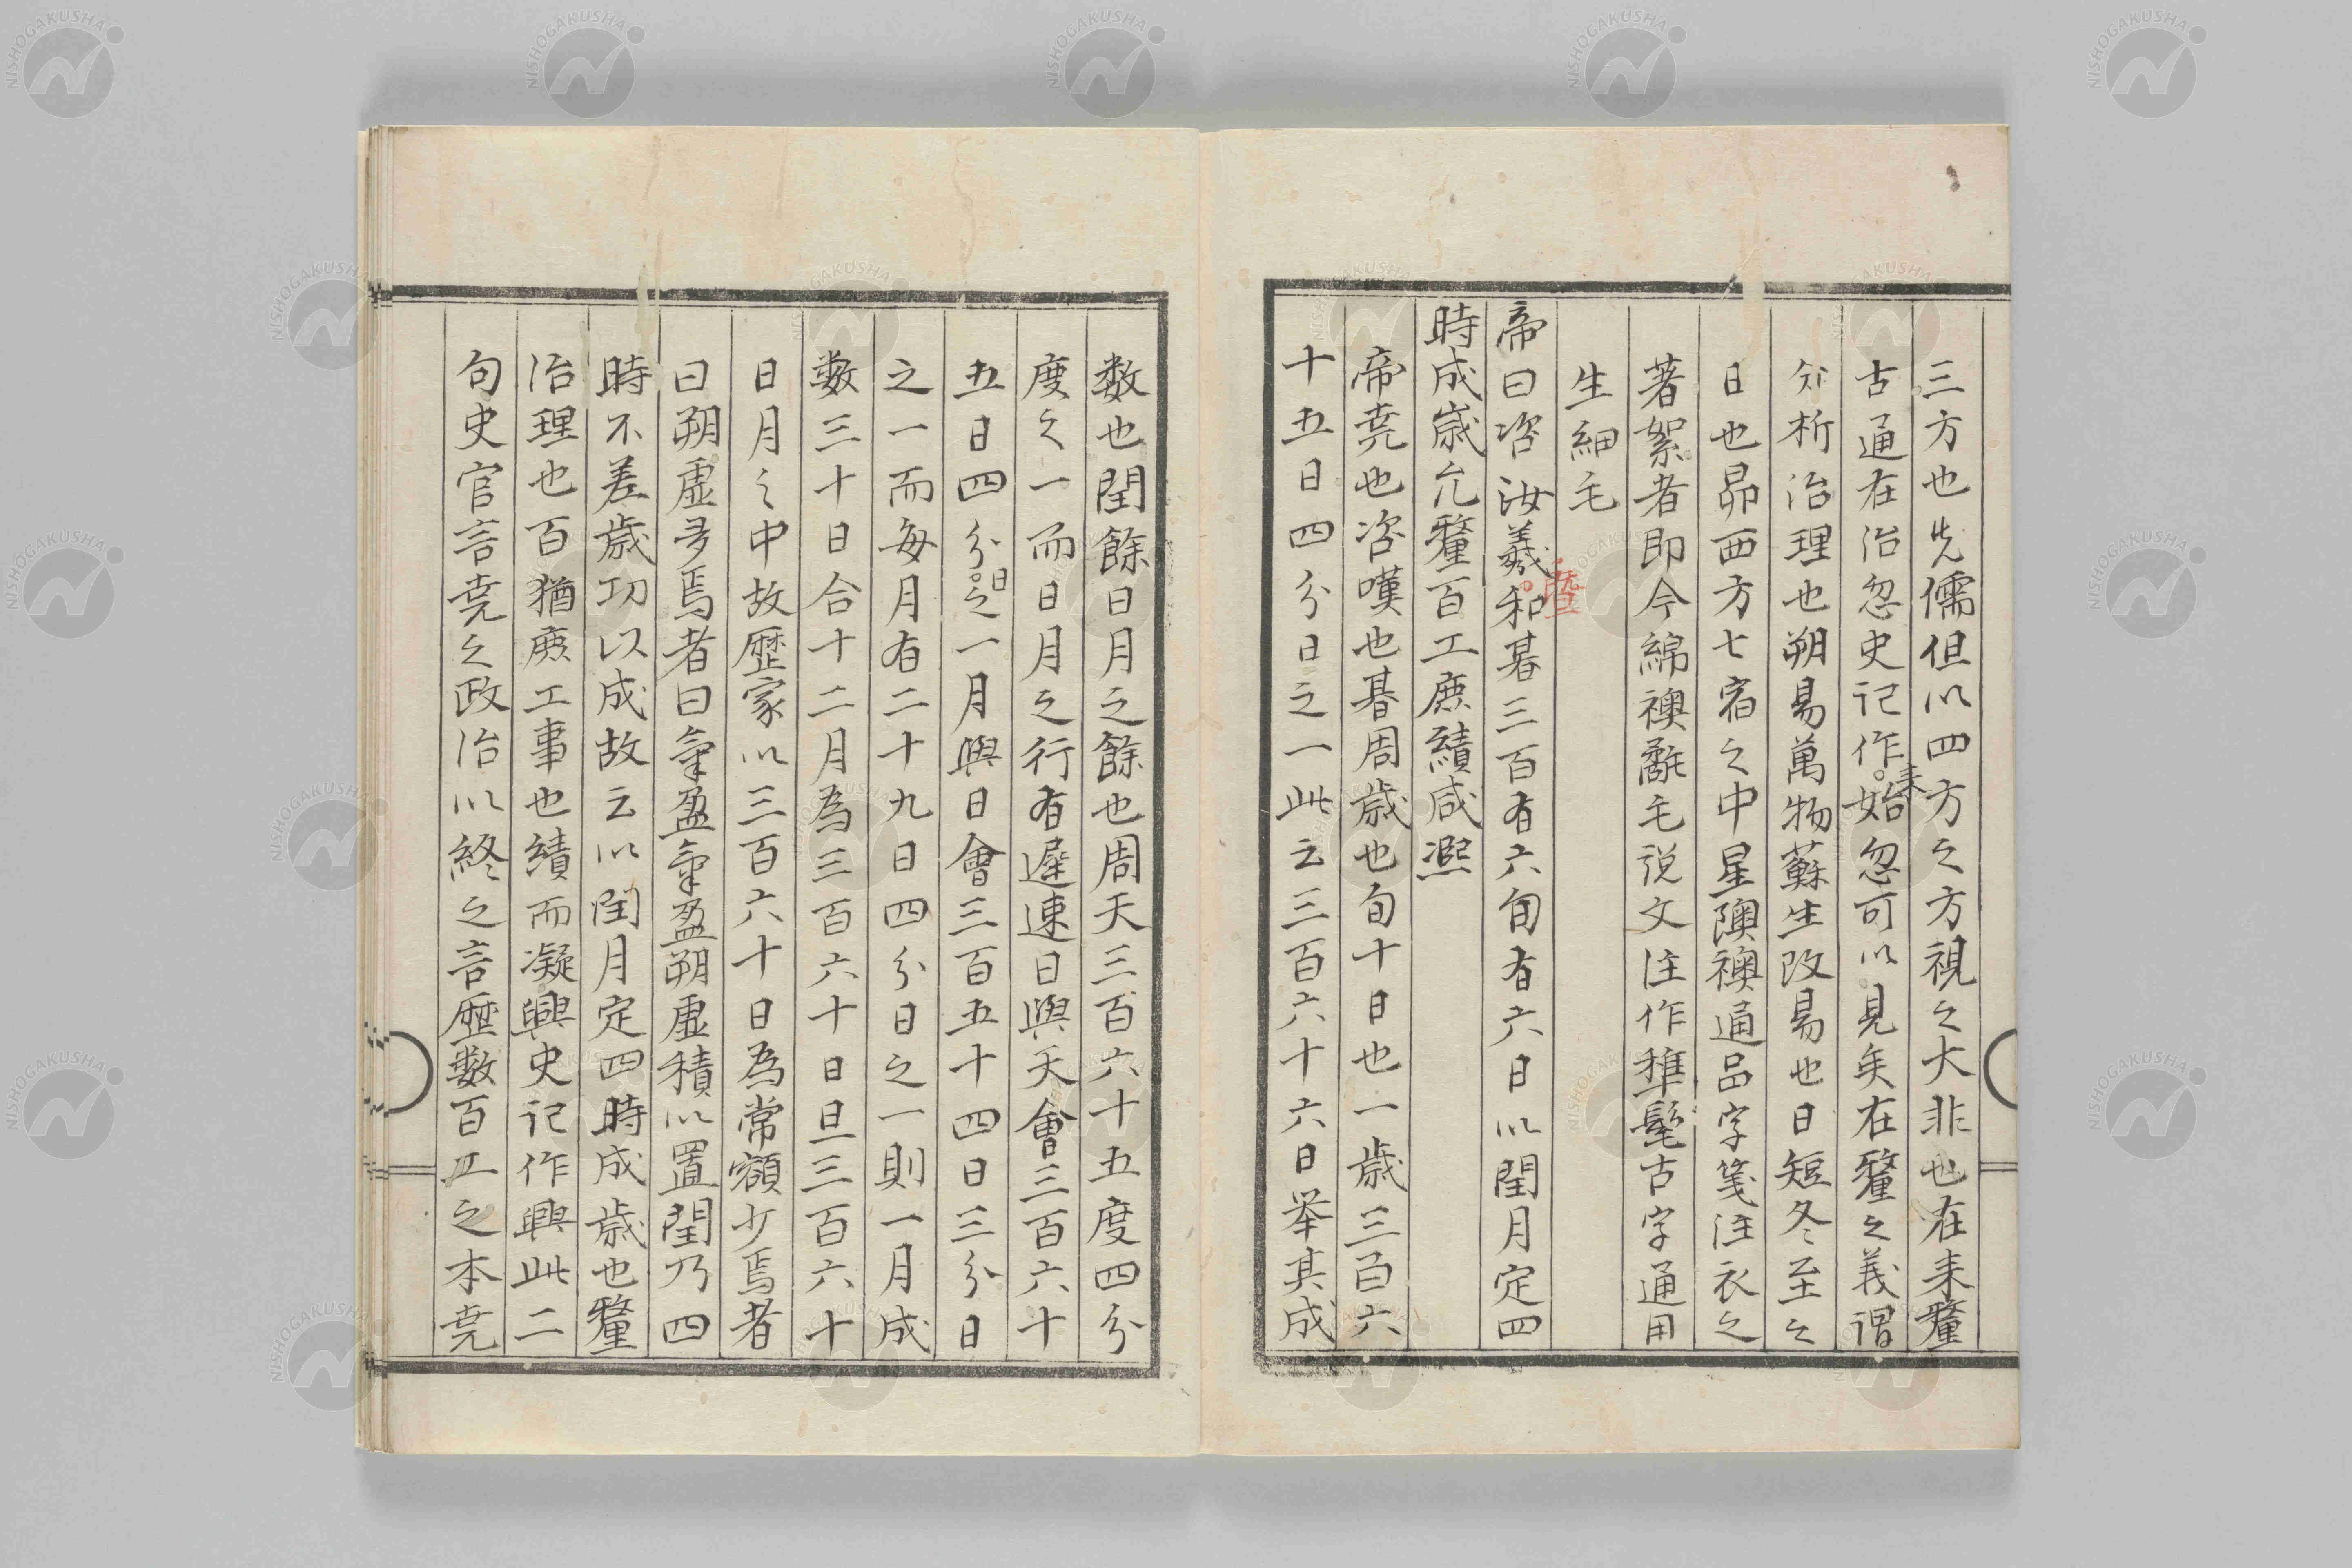 三方也先儒但以四方之方視之大非也在来釐
古通在治忽史記作来始忽可以見矣在釐之義謂
分析治理也朔易萬物蘇生改易也日短冬至之
日也昴西方七宿之中星隩襖通品字箋注衣之
著絮者即今綿襖氄毛説文注作𣯍髦古字通用
生細毛
帝曰咨汝羲暨和朞三百有六旬有六日以閏月定四
時成歳允釐百工庶績咸熙
帝尭也咨嘆也朞周歳也旬十日也一歳三百六
十五日四分日之一此云三百六十六日挙其成
数也閏餘日月之餘也周天三百六十五度四分
度之一而日月之行有遲速日與天會三百六十
五日四分日之一月與日會三百五十四日三分日
之一而毎月有二十九日四分日之一則一月成
数三十日合十二月為三百六十日旦三百六十
日月之中故歴家以三百六十日為常額少焉者
曰朔虚多焉者曰氣盈氣盈朔虚積以置閏乃四
時不差歳功以成故云以閏月定四時成歳也釐
治理也百猶庶工事也績而凝興史記作興此二
句史官言尭之政治以終之言歴数百工之本尭